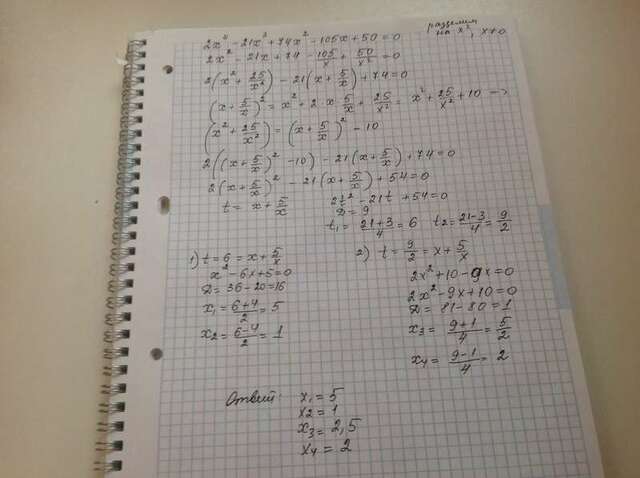 разделим
на x², x≠0
2x⁴-21x³+74x²-105x+50=0
2x²-21x+74-105/x+50/x²=0
2(x²+25/x²)-21(x+5/x)+74=0
(x+5/x)²=x²+2·x·5/x+25/x²=x²+25/x²+10→
(x²+25/x²)=(x+5/x)²-10
2((x+5/x)²-10)-21(x+5/x)+74=0
2(x+5/x)²-21(x+5/x)+54=0
t=x+5/x
2t²-21t+54=0
D=9
t₁=(21+3)/4=6 t₂=(21-3)/4=9/2
1) t=6=x+5/x
x²-6x+5=0
D=36-20=16
x₁=(6+4)/2=5
x₂=(6-4)/2=1
2) t=9/2=x+5/x
2x²+10-9x=0
2x²-9x+10=0
D=81-80=1
x₃=(9+1)/4=5/2
x₄=(9-1)/4=2
Ответ: x₁=5
x₂=1
x₃=2,5
x₄=2